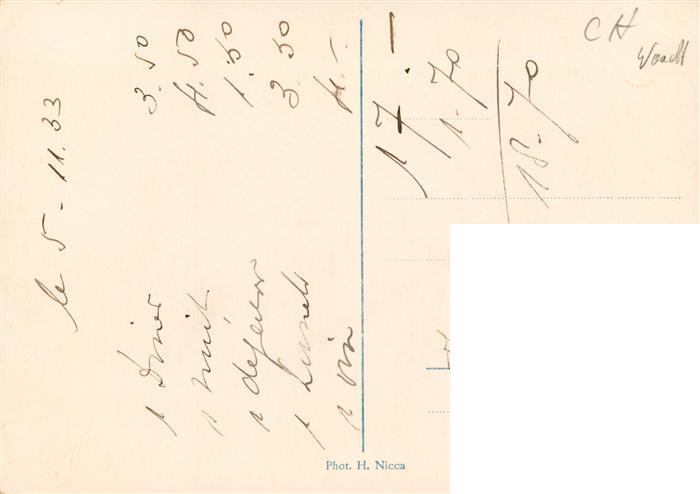 CH
Waadt
le 5 - 11.33
1 diner 3.50
1 nuit 4.50
1 déjeuner 1.50
1 Lunch 3.50
1 vin 4.-
17.-
1.70
18.70
Phot. H. Nicca